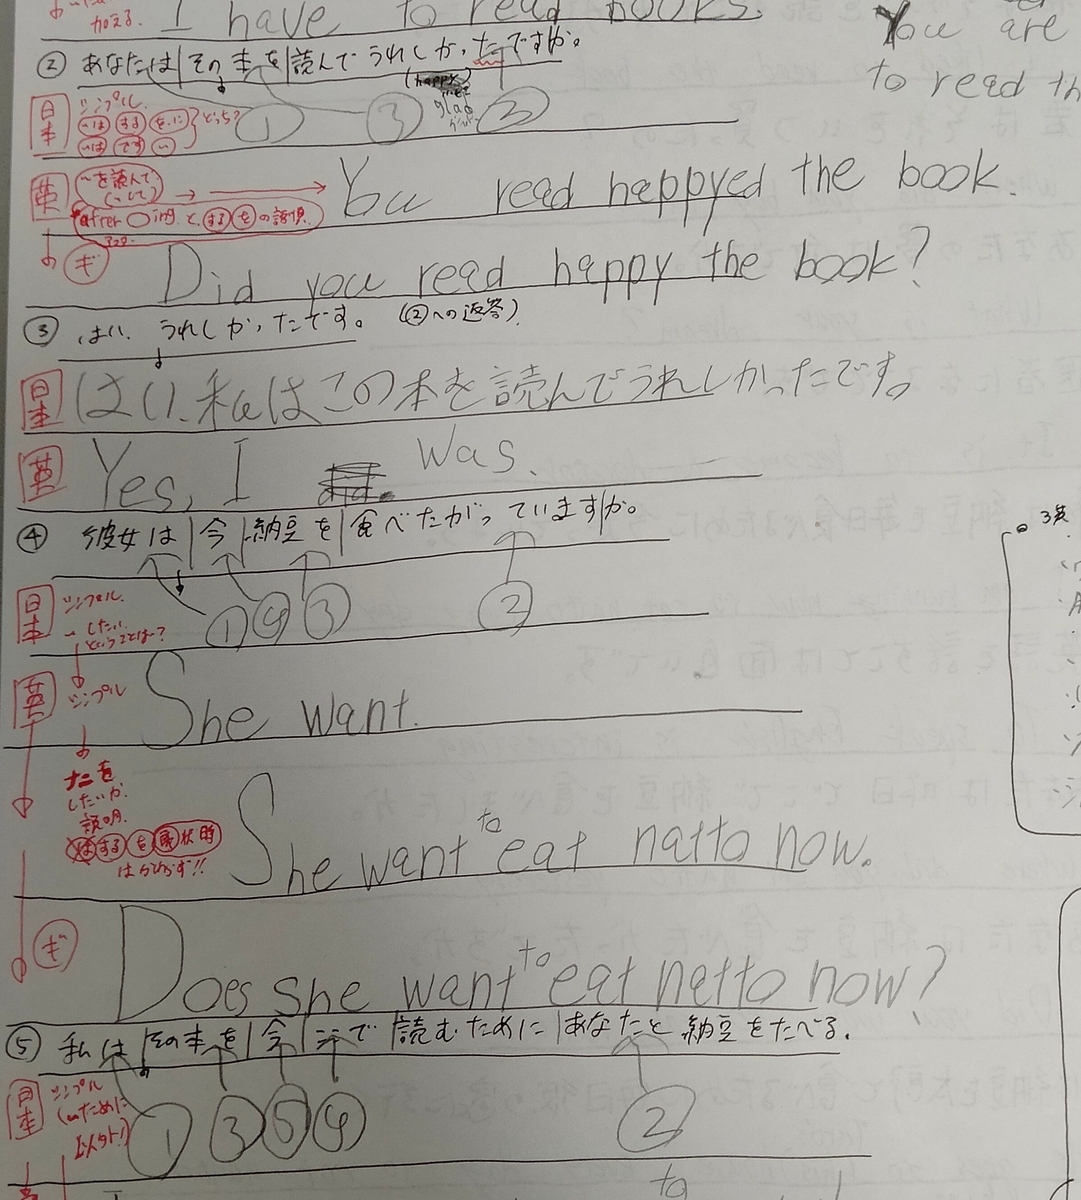 加える.
I have to read books.
You are
to read th
② あなたは|その本を|読んで うれしかったですか。
(happy)
glad
日本 シンプル.
〜は する を.に
〜は です 〜
どっち?
① ③ ②
英 〜を読んで
(〜して)
after ○ing と、するをの語順.
You read happyed the book.
ギ Did you read happy the book?
③ はい、うれしかったです。 (②への返答)
日本 はい、私はこの本を読んでうれしかったです。
英 Yes, I was.
④ 彼女は|今|納豆を|食べたがっています|か。
日本 シンプル.
〜したい.
ということは〜?
① ④ ③ ②
英 シンプル
She want.
ナニを
したいか.
説明.
する を 場 状 時
はらひらず!!
She want to eat natto now.
ギ Does she want to eat natto now?
⑤ 私は|その本を|今|ここで|読むために|あなたと 納豆をたべる.
日本 シンプル
(〜ために
以外!)
① ③ ⑤ ④ ②
to